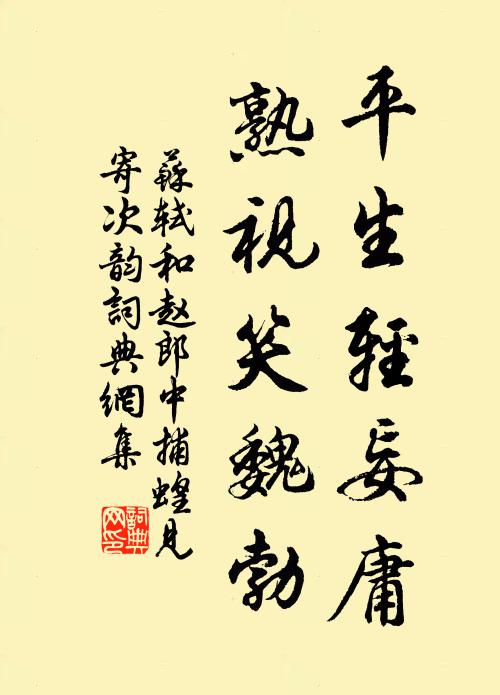 平生輕妄庸
熟視笑魏勃
蘇軾和赵郎中捕蝗見
寄次韵詞典網集
詞典
网印